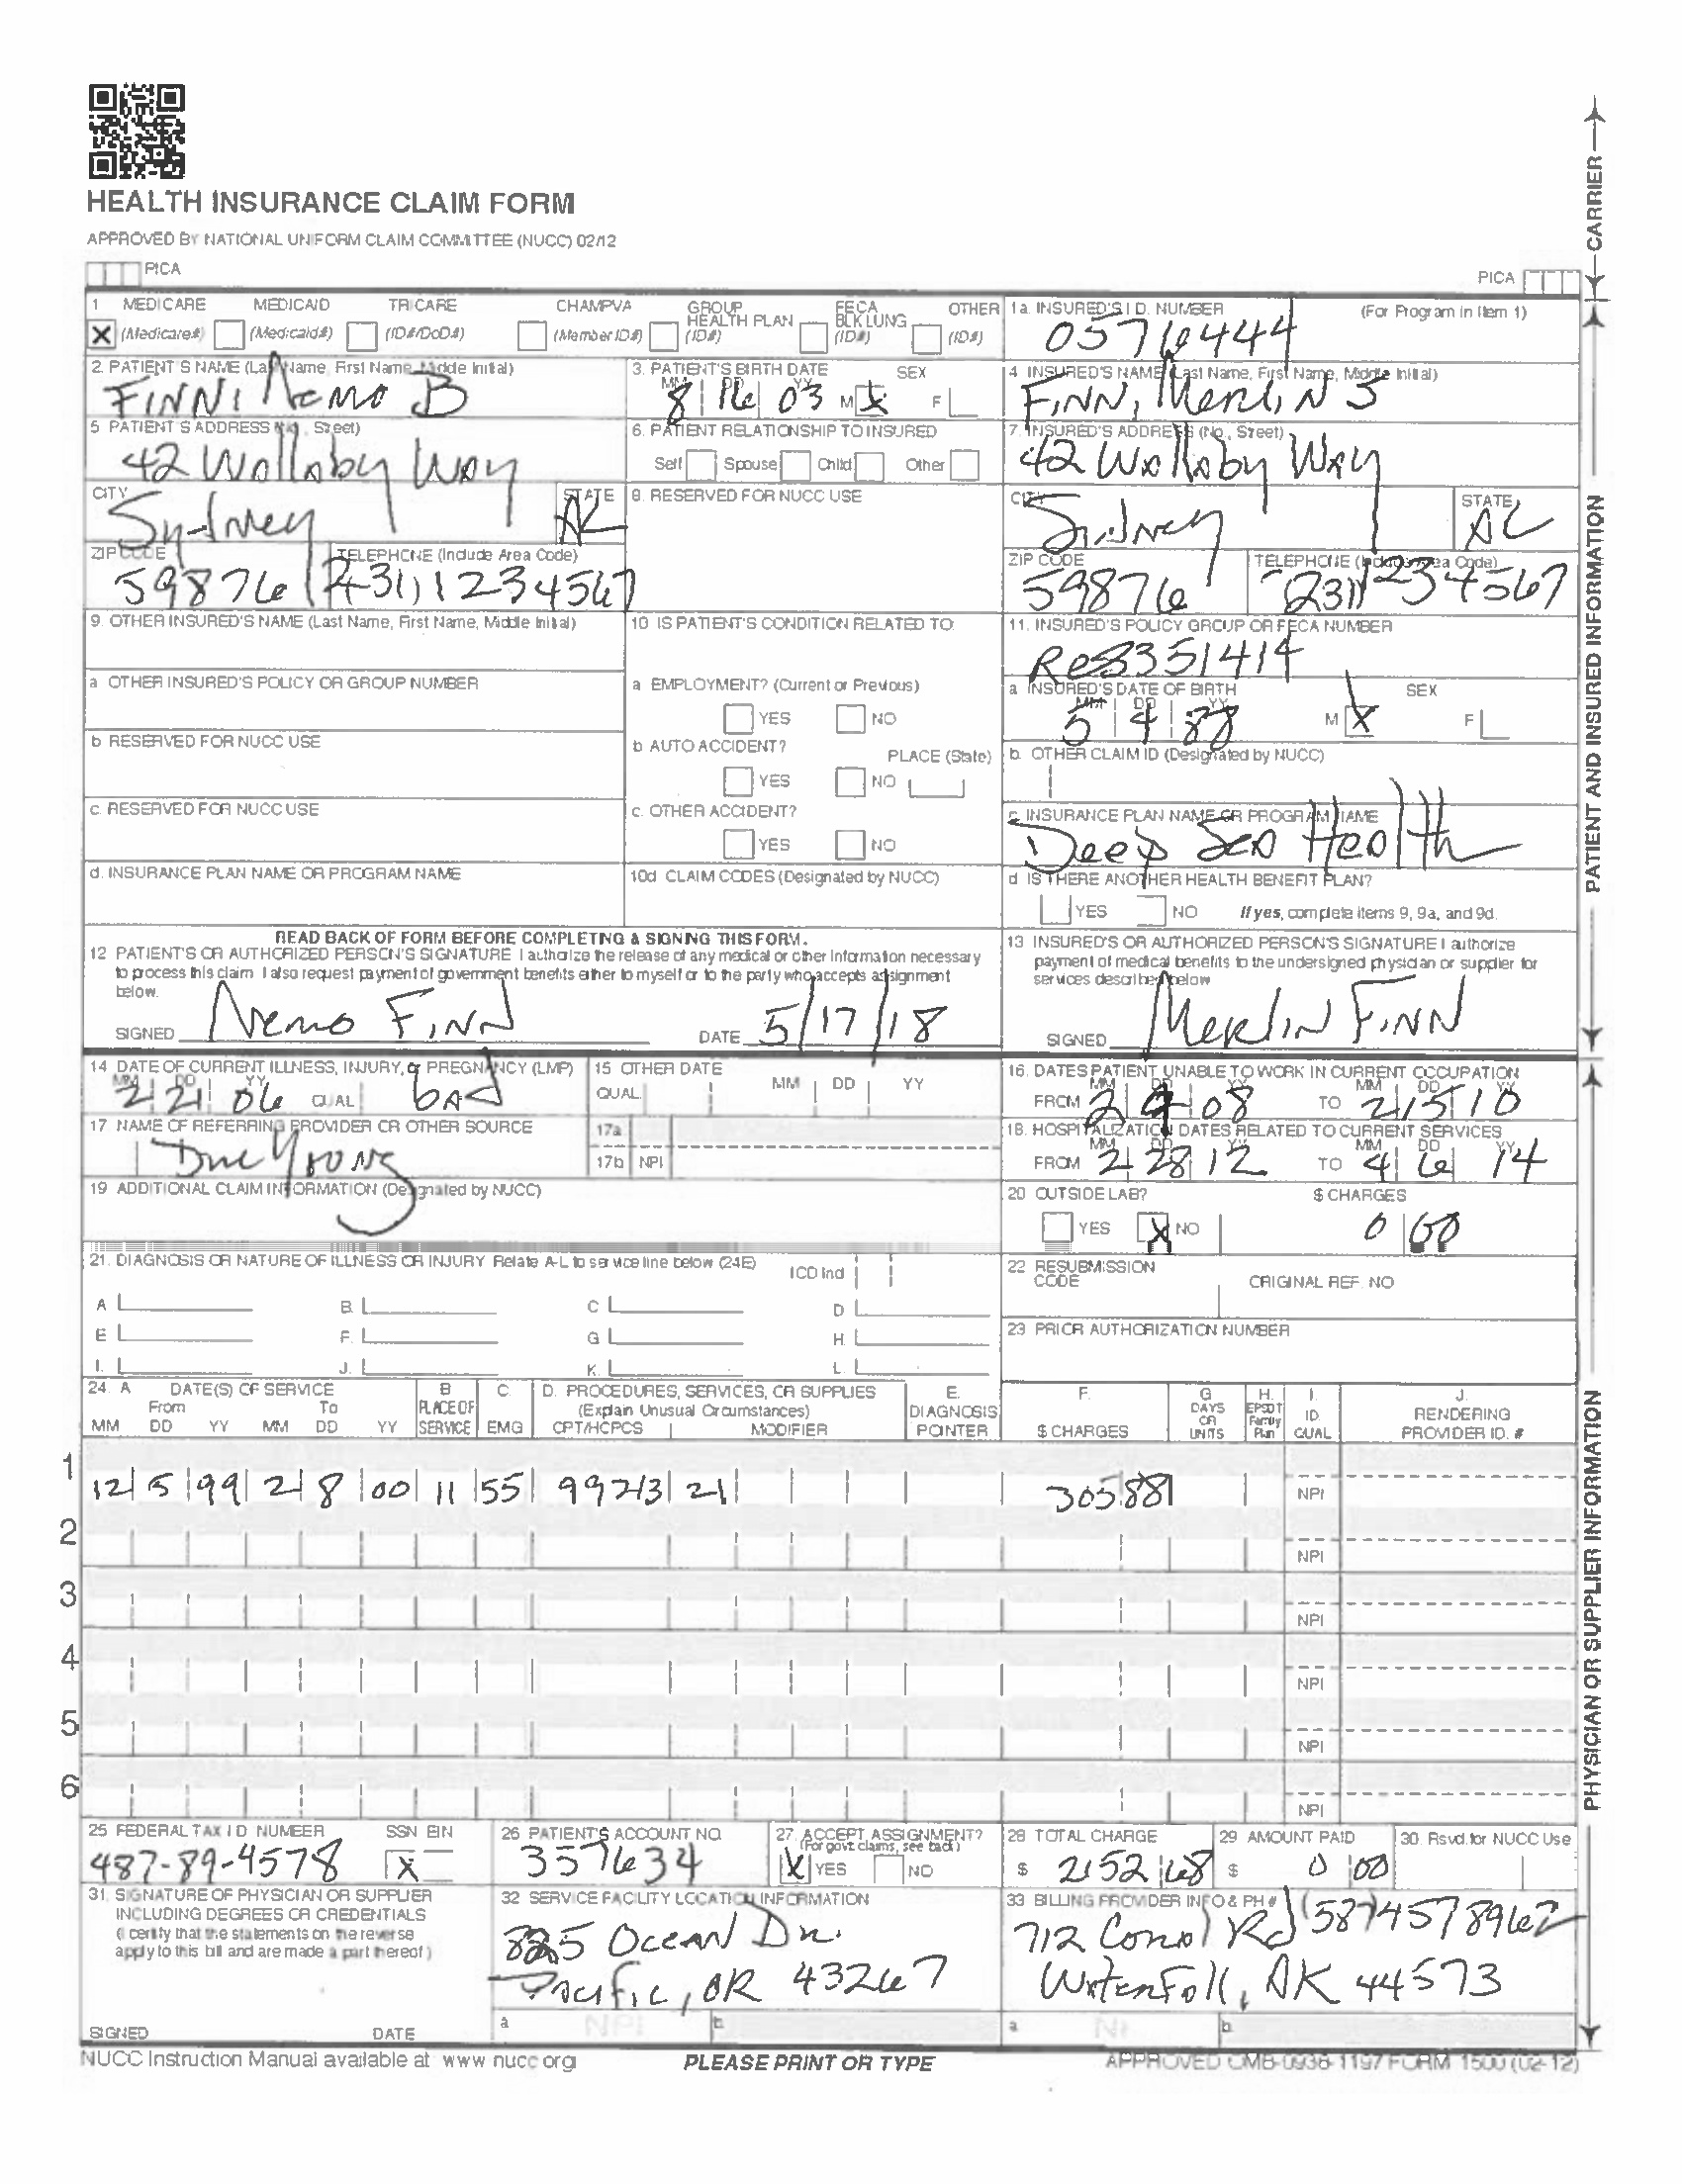 HEALTH INSURANCE CLAIM FORM
APPROVED BY NATIONAL UNIFORM CLAIM COMMITTEE (NUCC) 02/12
PICA
PICA
CARRIER
1 MEDICARE MEDICAID TRICARE CHAMPVA GROUP HEALTH PLAN FECA BLK LUNG OTHER
X (Medicare#) (Medicaid#) (ID#/DoD#) (Member ID#) (ID#) (ID#) (ID#)
1a. INSURED'S I.D. NUMBER (For Program in Item 1)
05716444
2. PATIENT'S NAME (Last Name, First Name, Middle Initial)
FINN, Nemo B
3. PATIENT'S BIRTH DATE SEX
MM DD YY
8 16 03 M X F
4 INSURED'S NAME (Last Name, First Name, Middle Initial)
FINN, Merlin S
5 PATIENT'S ADDRESS (No., Street)
42 Wallaby Way
6. PATIENT RELATIONSHIP TO INSURED
Self Spouse Child Other
7. INSURED'S ADDRESS (No., Street)
42 Wallaby Way
CITY STATE
Sydney AL
8. RESERVED FOR NUCC USE
CITY STATE
Sydney AL
ZIP CODE TELEPHONE (Include Area Code)
59876 (231) 1234567
ZIP CODE TELEPHONE (Include Area Code)
59876 (231) 1234567
9. OTHER INSURED'S NAME (Last Name, First Name, Middle Initial)
10 IS PATIENT'S CONDITION RELATED TO:
11. INSURED'S POLICY GROUP OR FECA NUMBER
Re8351414
a OTHER INSURED'S POLICY OR GROUP NUMBER
a EMPLOYMENT? (Current or Previous)
YES NO
a INSURED'S DATE OF BIRTH SEX
MM DD YY
5 4 88 M X F
b RESERVED FOR NUCC USE
b AUTO ACCIDENT? PLACE (State)
YES NO
b. OTHER CLAIM ID (Designated by NUCC)
c. RESERVED FOR NUCC USE
c. OTHER ACCIDENT?
YES NO
c. INSURANCE PLAN NAME OR PROGRAM NAME
Deep Sea Health
d. INSURANCE PLAN NAME OR PROGRAM NAME
10d CLAIM CODES (Designated by NUCC)
d IS THERE ANOTHER HEALTH BENEFIT PLAN?
YES NO If yes, complete items 9, 9a, and 9d.
READ BACK OF FORM BEFORE COMPLETING & SIGNING THIS FORM.
12 PATIENT'S OR AUTHORIZED PERSON'S SIGNATURE I authorize the release of any medical or other information necessary
to process this claim. I also request payment of government benefits either to myself or to the party who accepts assignment
below.
SIGNED Nemo Finn DATE 5/17/18
13 INSURED'S OR AUTHORIZED PERSON'S SIGNATURE I authorize
payment of medical benefits to the undersigned physician or supplier for
services described below
SIGNED Merlin Finn
PATIENT AND INSURED INFORMATION
14 DATE OF CURRENT ILLNESS, INJURY, or PREGNANCY (LMP)
MM DD YY
2 21 06 QUAL bad
15 OTHER DATE
QUAL. MM DD YY
16. DATES PATIENT UNABLE TO WORK IN CURRENT OCCUPATION
MM DD YY MM DD YY
FROM 2 08 TO 2 15 10
17 NAME OF REFERRING PROVIDER OR OTHER SOURCE
Young
17a
17b NPI
18. HOSPITALIZATION DATES RELATED TO CURRENT SERVICES
MM DD YY MM DD YY
FROM 2 28 12 TO 4 6 14
19 ADDITIONAL CLAIM INFORMATION (Designated by NUCC)
20 OUTSIDE LAB? $ CHARGES
YES X NO 0 00
21. DIAGNOSIS OR NATURE OF ILLNESS OR INJURY Relate A-L to service line below (24E) ICD Ind
A B. C D
E F. G H.
I. J. K. L.
22 RESUBMISSION CODE ORIGINAL REF. NO
23 PRIOR AUTHORIZATION NUMBER
24. A DATE(S) OF SERVICE B C. D. PROCEDURES, SERVICES, OR SUPPLIES E. F. G H. I. J.
From To PLACE OF (Explain Unusual Circumstances) DIAGNOSIS DAYS OR UNITS EPSDT Family Plan ID. RENDERING
MM DD YY MM DD YY SERVICE EMG CPT/HCPCS MODIFIER POINTER $ CHARGES QUAL PROVIDER ID. #
1
12 5 99 2 8 00 11 55 99213 21 305 88 NPI
2
NPI
3
NPI
4
NPI
5
NPI
6
NPI
25 FEDERAL TAX I.D. NUMBER SSN EIN
487-89-4578 X
26 PATIENT'S ACCOUNT NO.
357634
27. ACCEPT ASSIGNMENT?
(For govt claims, see back)
X YES NO
28 TOTAL CHARGE
$ 2152 68
29 AMOUNT PAID
$ 0 00
30. Rsvd. for NUCC Use
31. SIGNATURE OF PHYSICIAN OR SUPPLIER
INCLUDING DEGREES OR CREDENTIALS
(I certify that the statements on the reverse
apply to this bill and are made a part thereof.)
SIGNED DATE
32 SERVICE FACILITY LOCATION INFORMATION
825 Ocean Dr.
Pacific, OR 43267
a NPI b
33 BILLING PROVIDER INFO & PH #
(587)4578962
712 Coral Rd
Waterfall, AK 44573
a NPI b
PHYSICIAN OR SUPPLIER INFORMATION
NUCC Instruction Manual available at www nucc org PLEASE PRINT OR TYPE APPROVED OMB-0938-1197 FORM 1500 (02-12)